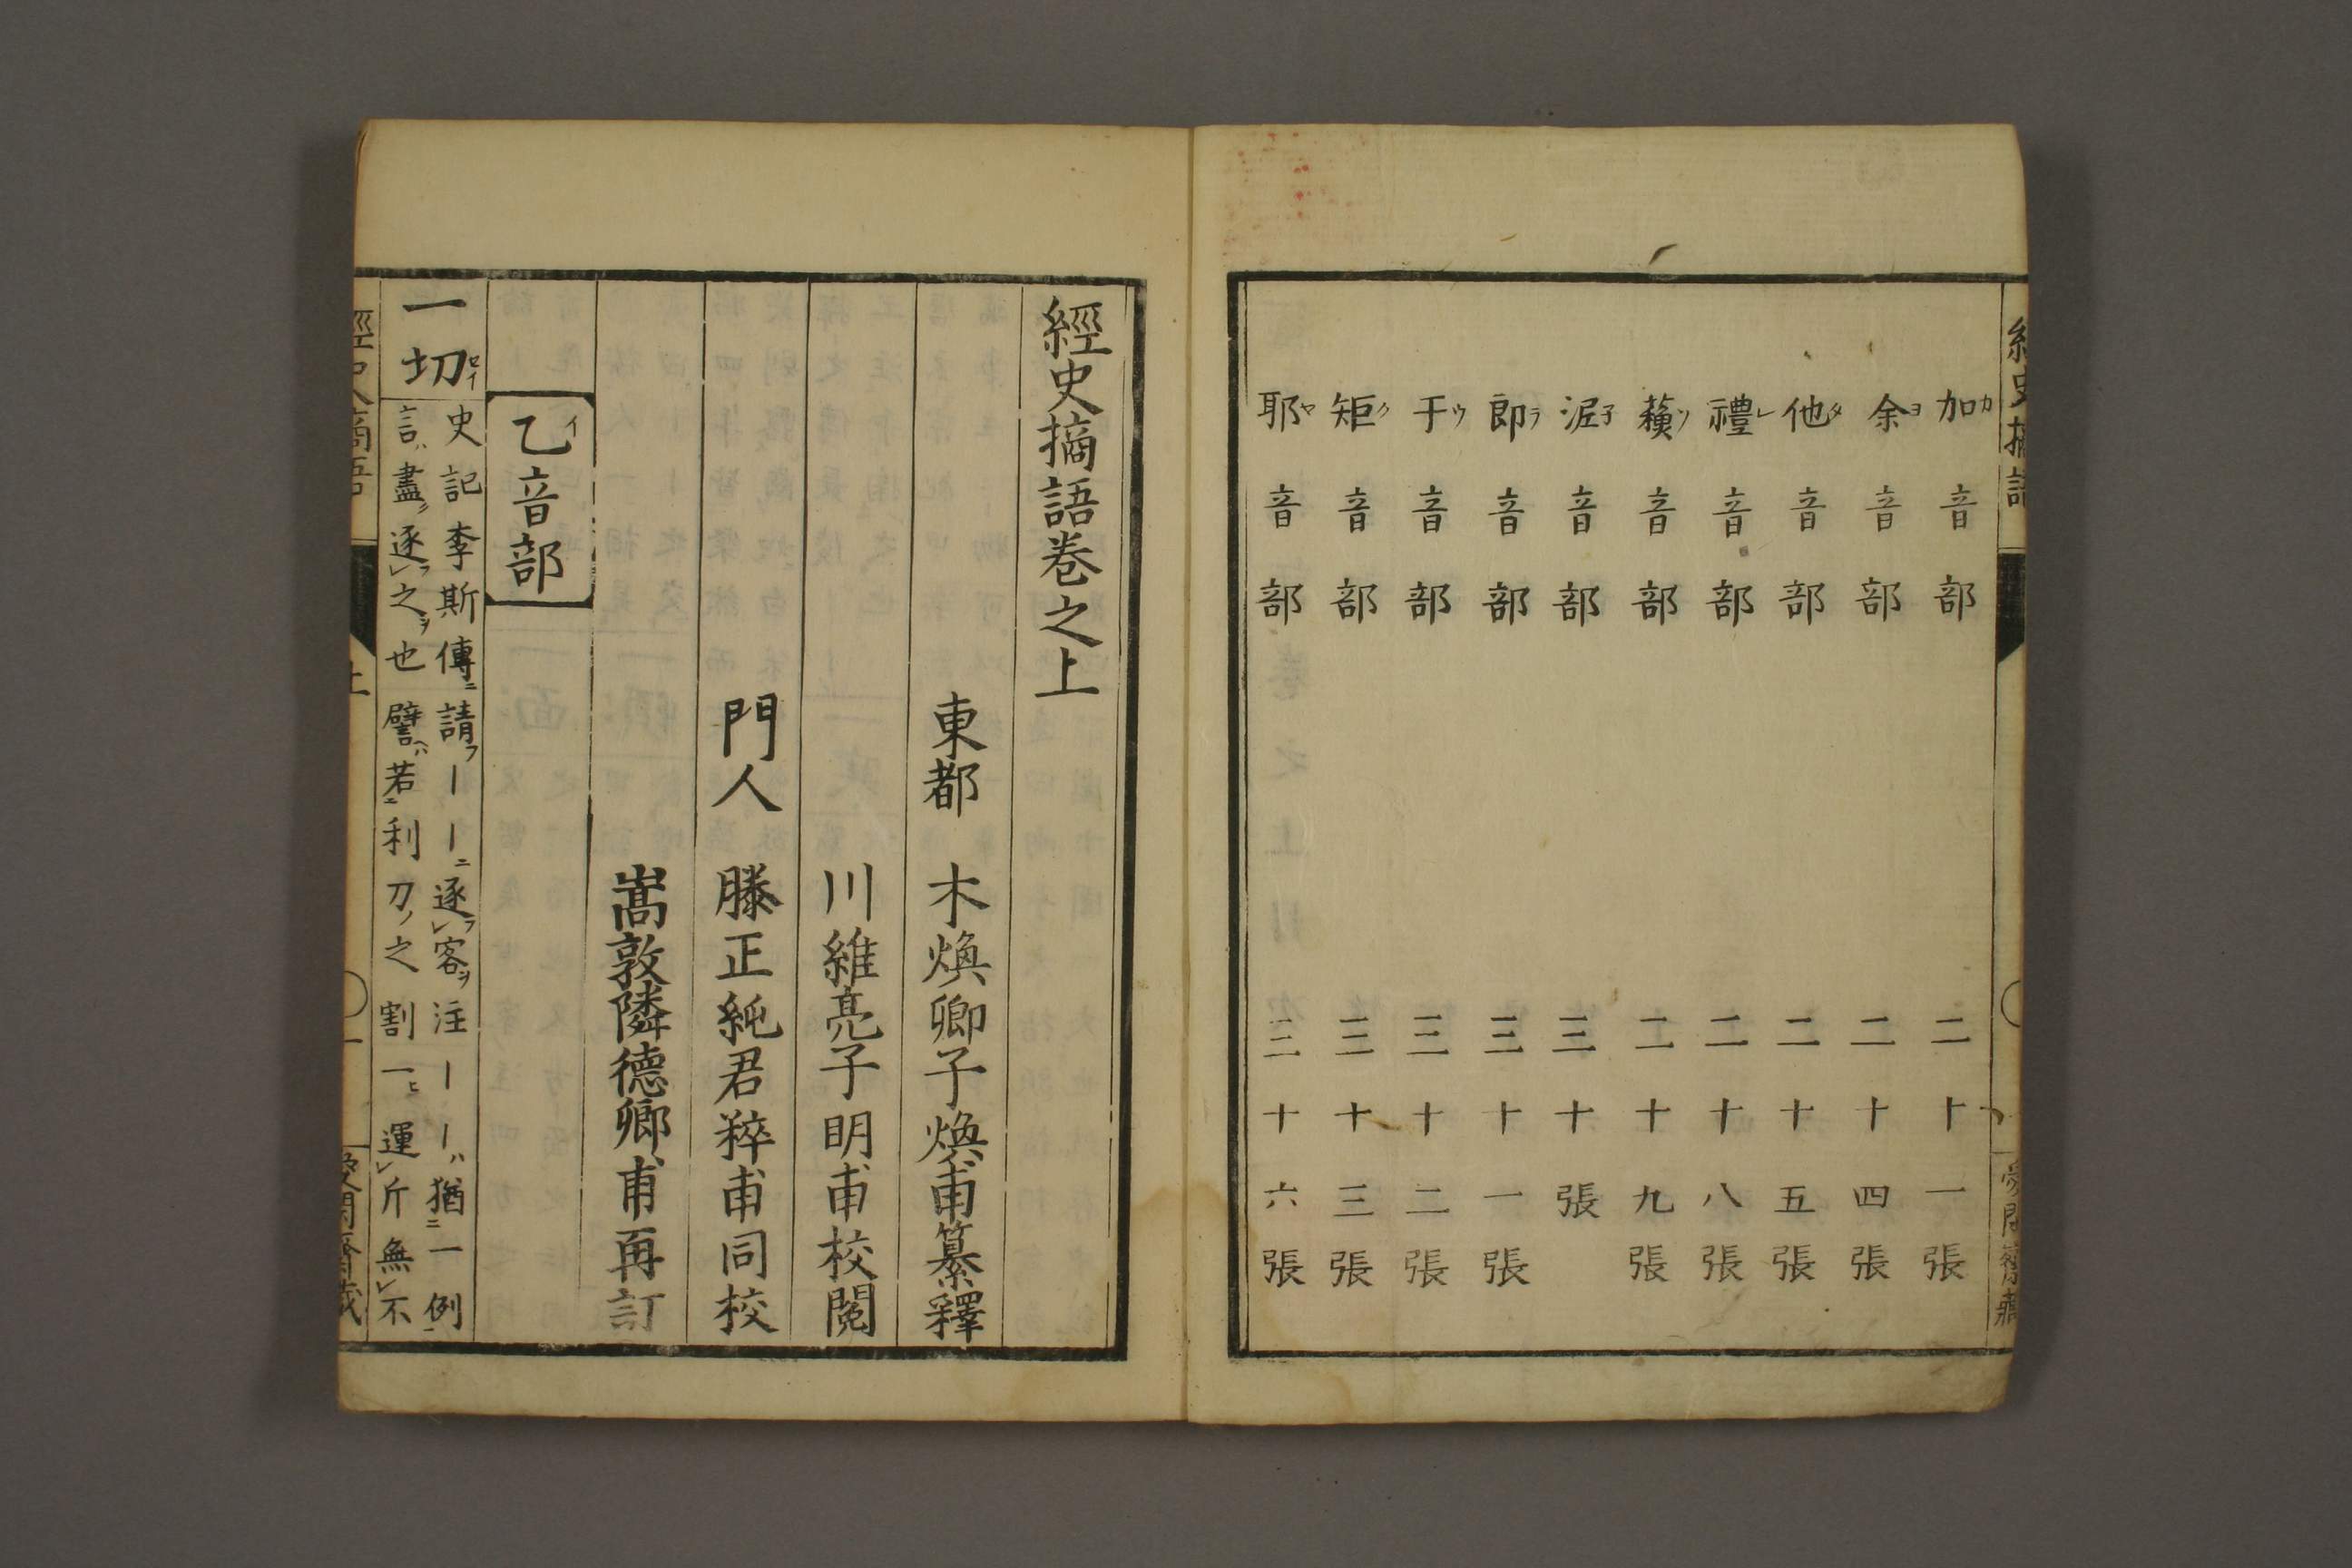 經史摘語
加カ音部 二十一張
余ヨ音部 二十四張
他タ音部 二十五張
禮レ音部 二十八張
蘓ソ音部 二十九張
泥子音部 三十張
郎ラ音部 三十一張
于ウ音部 三十二張
矩ク音部 三十三張
耶ヤ音部 三十六張
經史摘語卷之上
東都 木煥卿子煥甫纂釋
川維亮子明甫校閱
門人 滕正純君粹甫同校
嵩敦隣德卿甫再訂
乙イ音部
一切セイ
史記李斯傳ニ請フ――ニ逐フレ客ヲ注――ハ猶ニ一例ニ
言ハ盡ク逐フレ之ヲ也譬ハ若ニ利刀ノ之割一ヒ運レ斤無レ不
經史摘語 上 一